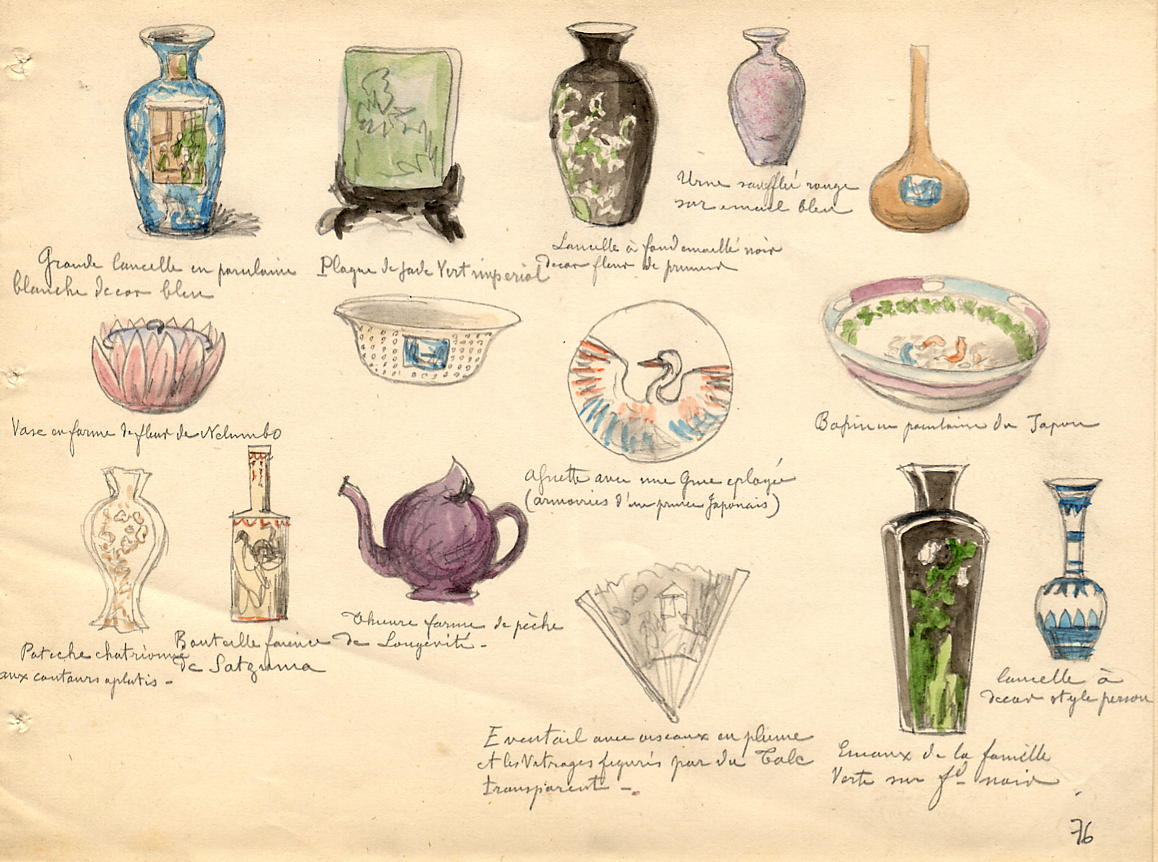 Grande lancelle en porcelaine
blanche decor bleu
Plaque de jade Vert imperial
Lancelle à fond emaillé noir
decor fleur de prunier
Urne soufflé rouge
sur email bleu
Vase en forme de fleur de Nelumbo
Assiette avec une Grue eployée
(armoiries d'un prince Japonais)
en porcelaine du Japon
Potiche
aux contours aplatis -
Bouteille faience
de Satzuma
forme de pèche
de Longévité -
Eventail avec oiseaux en plume
et les Vitrages figurés par du Talc
transparent -
Emaux de la famille
Verte sur fd noir
lancelle à
decor style persan
76